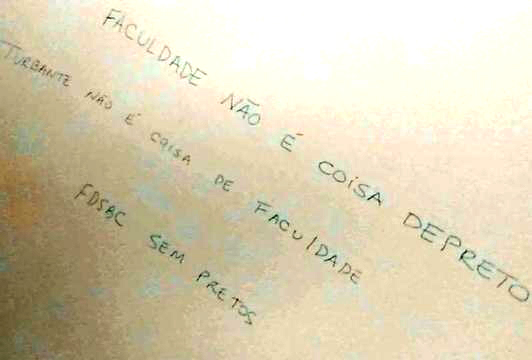 FACULDADE NÃO É COISA DEPRETO
TURBANTE NÃO É COISA DE FACUlDADE
FDSBC SEM PRETOS